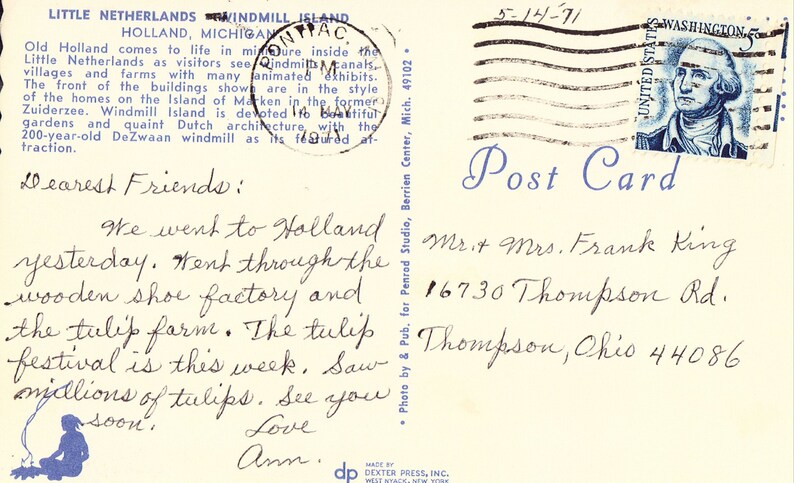 LITTLE NETHERLANDS WINDMILL ISLAND
HOLLAND, MICHIGAN
Old Holland comes to life in miniature inside the
Little Netherlands as visitors see windmills, canals,
villages and farms with many animated exhibits.
The front of the buildings shown are in the style
of the homes on the Island of Marken in the former
Zuiderzee. Windmill Island is devoted to beautiful
gardens and quaint Dutch architecture with the
200-year-old DeZwaan windmill as its featured at-
traction.
Dearest Friends:
We went to Holland
yesterday. Went through the
wooden shoe factory and
the tulip farm. The tulip
festival is this week. Saw
millions of tulips. See you
soon.
Love
Ann.
PONTIAC,
PM
14 MAY
1971
• Photo by & Pub. for Penrod Studio, Berrien Center, Mich. 49102 •
dp
MADE BY
DEXTER PRESS, INC.
WEST NYACK, NEW YORK
5-14-71
UNITED STATES
WASHINGTON 5c
Post Card
Mr. + Mrs. Frank King
16730 Thompson Rd.
Thompson, Ohio 44086